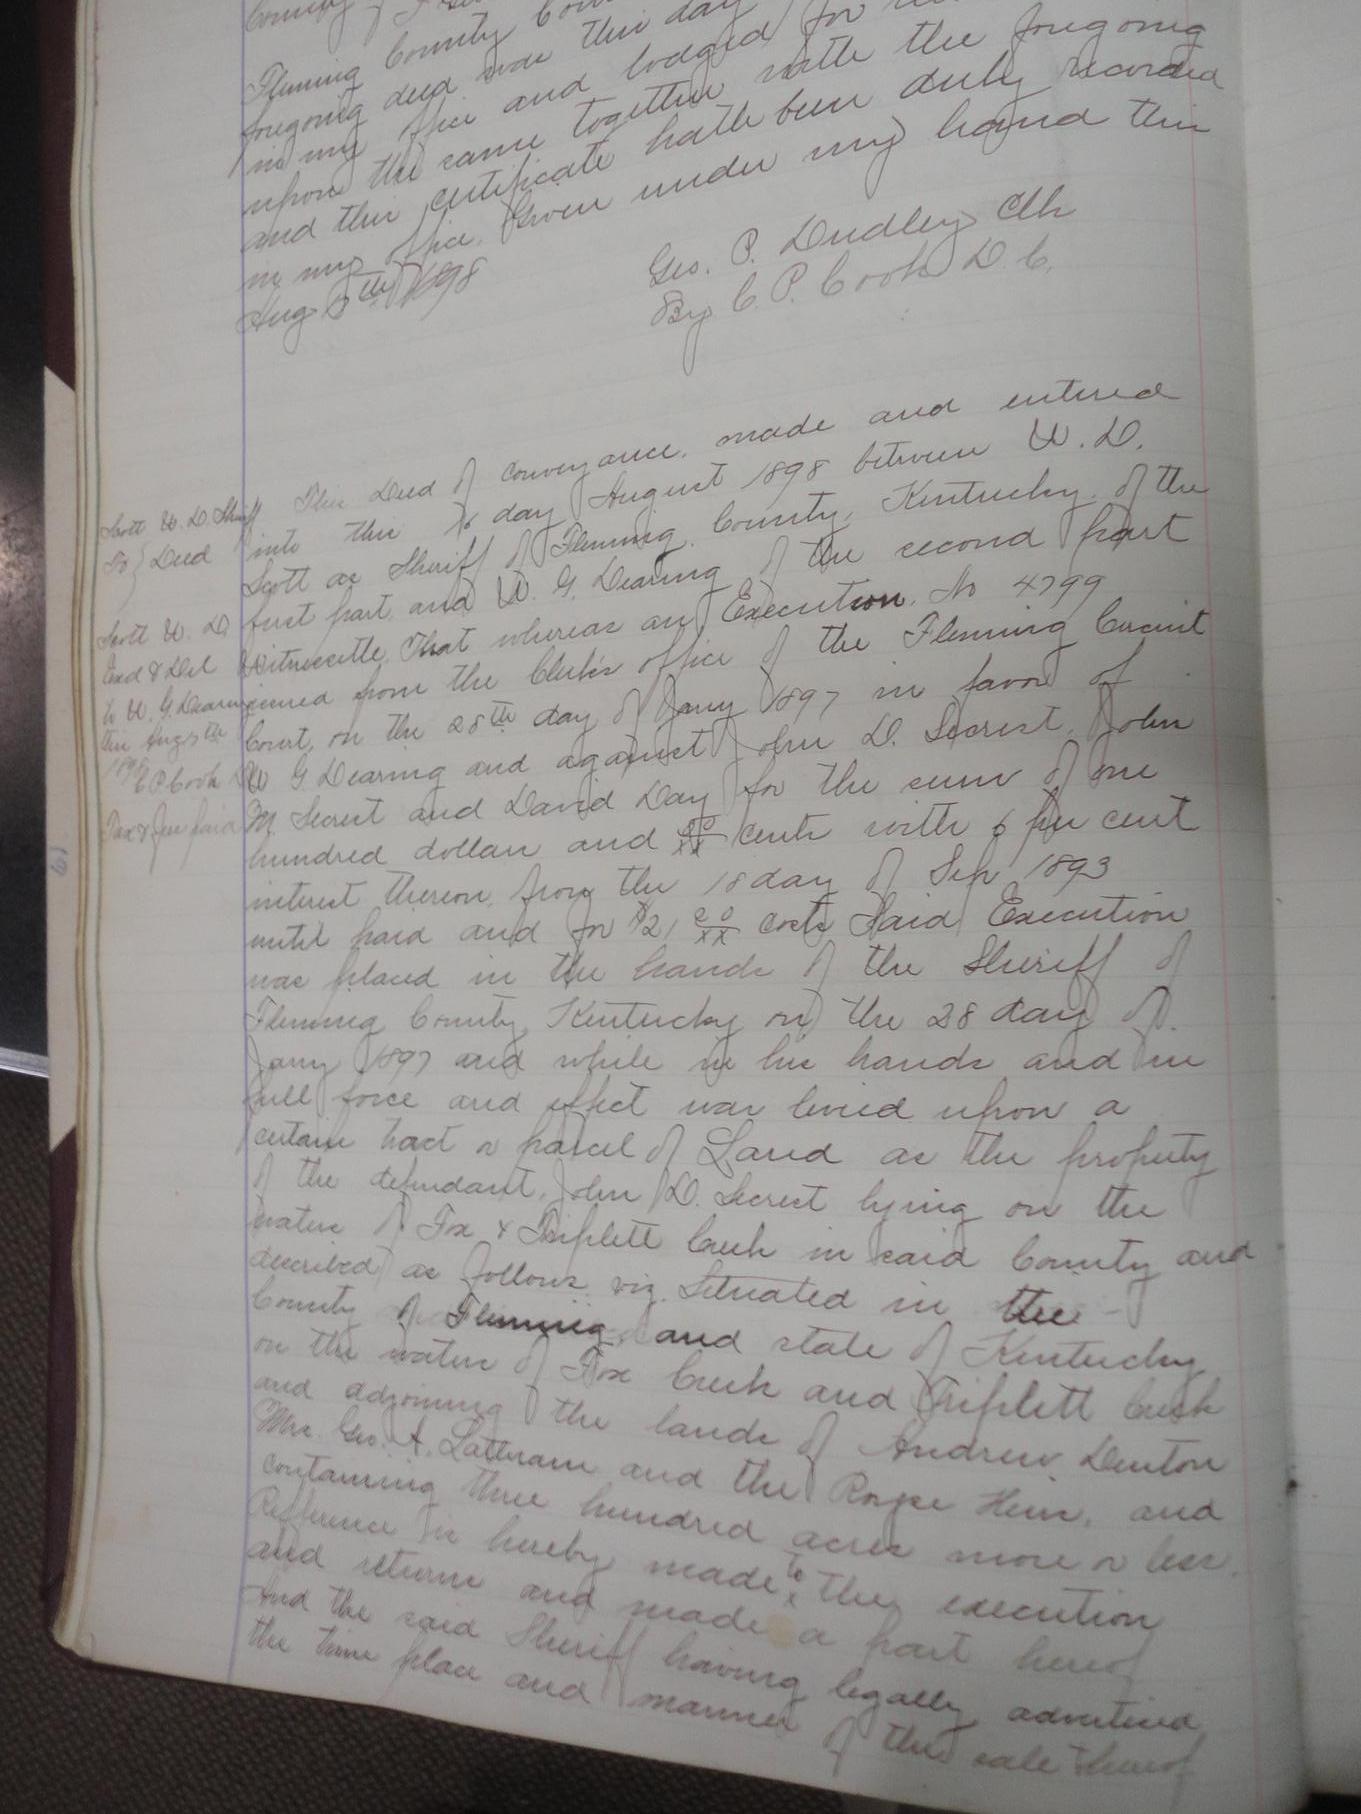 County
Fleming County
foregoing deed was this day
in my office and lodged for
upon the same together with the foregoing
and this certificate hath been duly recorded
in my office. Given under my hand this
Aug 8th 1898
Geo. P. Dudley Clk
By C. P. Cook D. C.
Scott W. D. Shff
To } Deed
Scott W. D.
End & Del
to W. G. Dearing
this Aug
1898
C P Cook
Tax & fee paid
This Deed of conveyance, made and entered
into this day August 1898 between W. D.
Scott as Sheriff of Fleming County, Kentucky, of the
first part and W. G. Dearing of the second part
Witnesseth, That whereas an Execution, No 4799
issued from the Clerk's office of the Fleming Circuit
Court, on the 28th day of Jany 1897 in favor of
W G Dearing and against John D. Secrest, John
M Secrest and David Day for the sum of one
hundred dollars and cents with 6 per cent
interest thereon, from the 18 day of Sep 1893
until paid and for $21 20/xx costs Said Execution
was placed in the hands of the Sheriff of
Fleming County, Kentucky on the 28 day of
Jany 1897 and while in his hands and in
full force and effect was levied upon a
certain tract or parcel of Land as the property
of the defendant, John D. Secrest lying on the
waters of Fox & Triplett Creek in said County and
described as follows viz. Situated in the
County of Fleming and state of Kentucky
on the waters of Fox Creek and Triplett Creek
and adjoining the lands of Andrew Denton
Mrs. Geo. A. and the Heirs, and
containing three hundred acres more or less.
Reference is hereby made to the execution
and returns and made a part hereof
And the said Sheriff having legally advertised
the time place and manner of the sale thereof